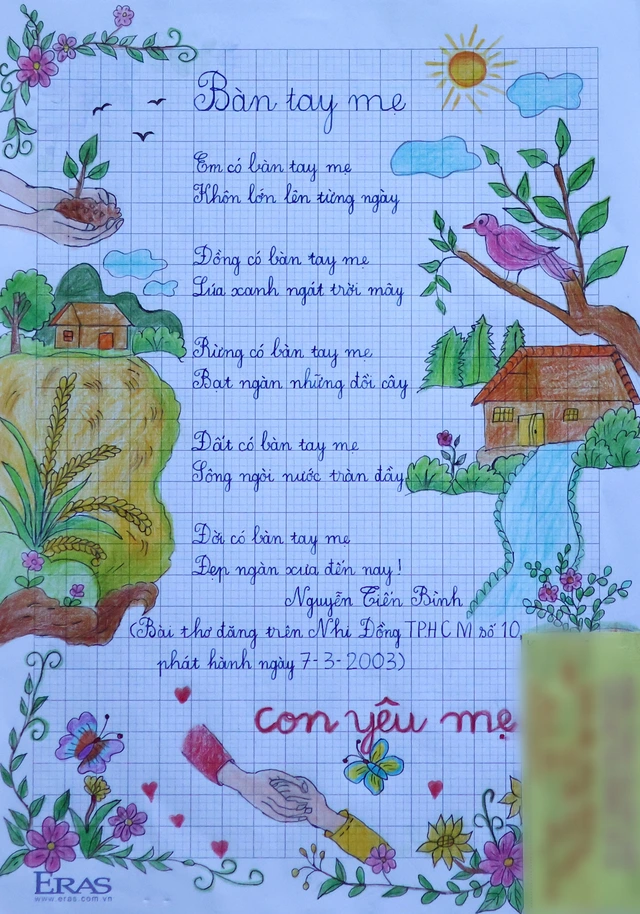 Bàn tay mẹ
Em có bàn tay mẹ
Khôn lớn lên từng ngày
Đồng có bàn tay mẹ
Lúa xanh ngát trời mây
Rừng có bàn tay mẹ
Bạt ngàn những đồi cây
Đất có bàn tay mẹ
Sông ngòi nước tràn đầy
Đời có bàn tay mẹ
Đẹp ngàn xưa đến nay!
Nguyễn Tiến Bình
(Bài thơ đăng trên Nhi Đồng TPHCM số 10,
phát hành ngày 7-3-2003)
con yêu mẹ
ERAS
www.eras.com.vn